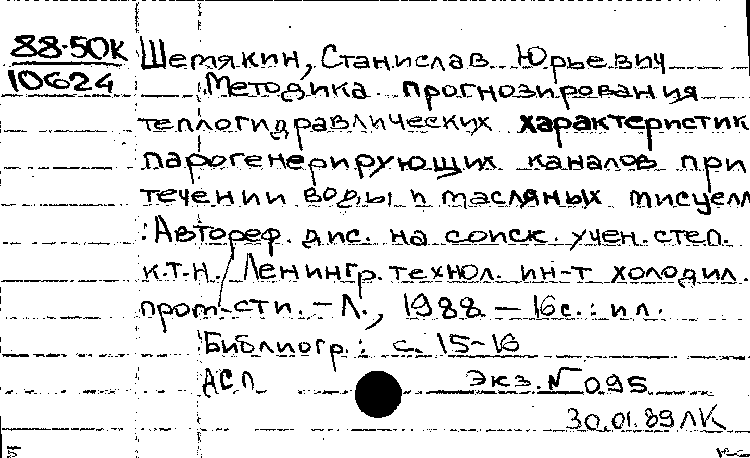 88-50К
10624
Шемякин, Станислав Юрьевич
Методика прогнозирования
теплогидравлических характеристик
парогенерирующих каналов при
течении воды и масляных мисцелл
: Автореф. дис. на соиск. учен. степ.
к.т.н. / Ленингр. технол. ин-т холодил.
пром-сти. - Л., 1988. - 16 с. : ил.
Библиогр.: с. 15-16
АСП Экз. № 095
30.01.89 ЛК